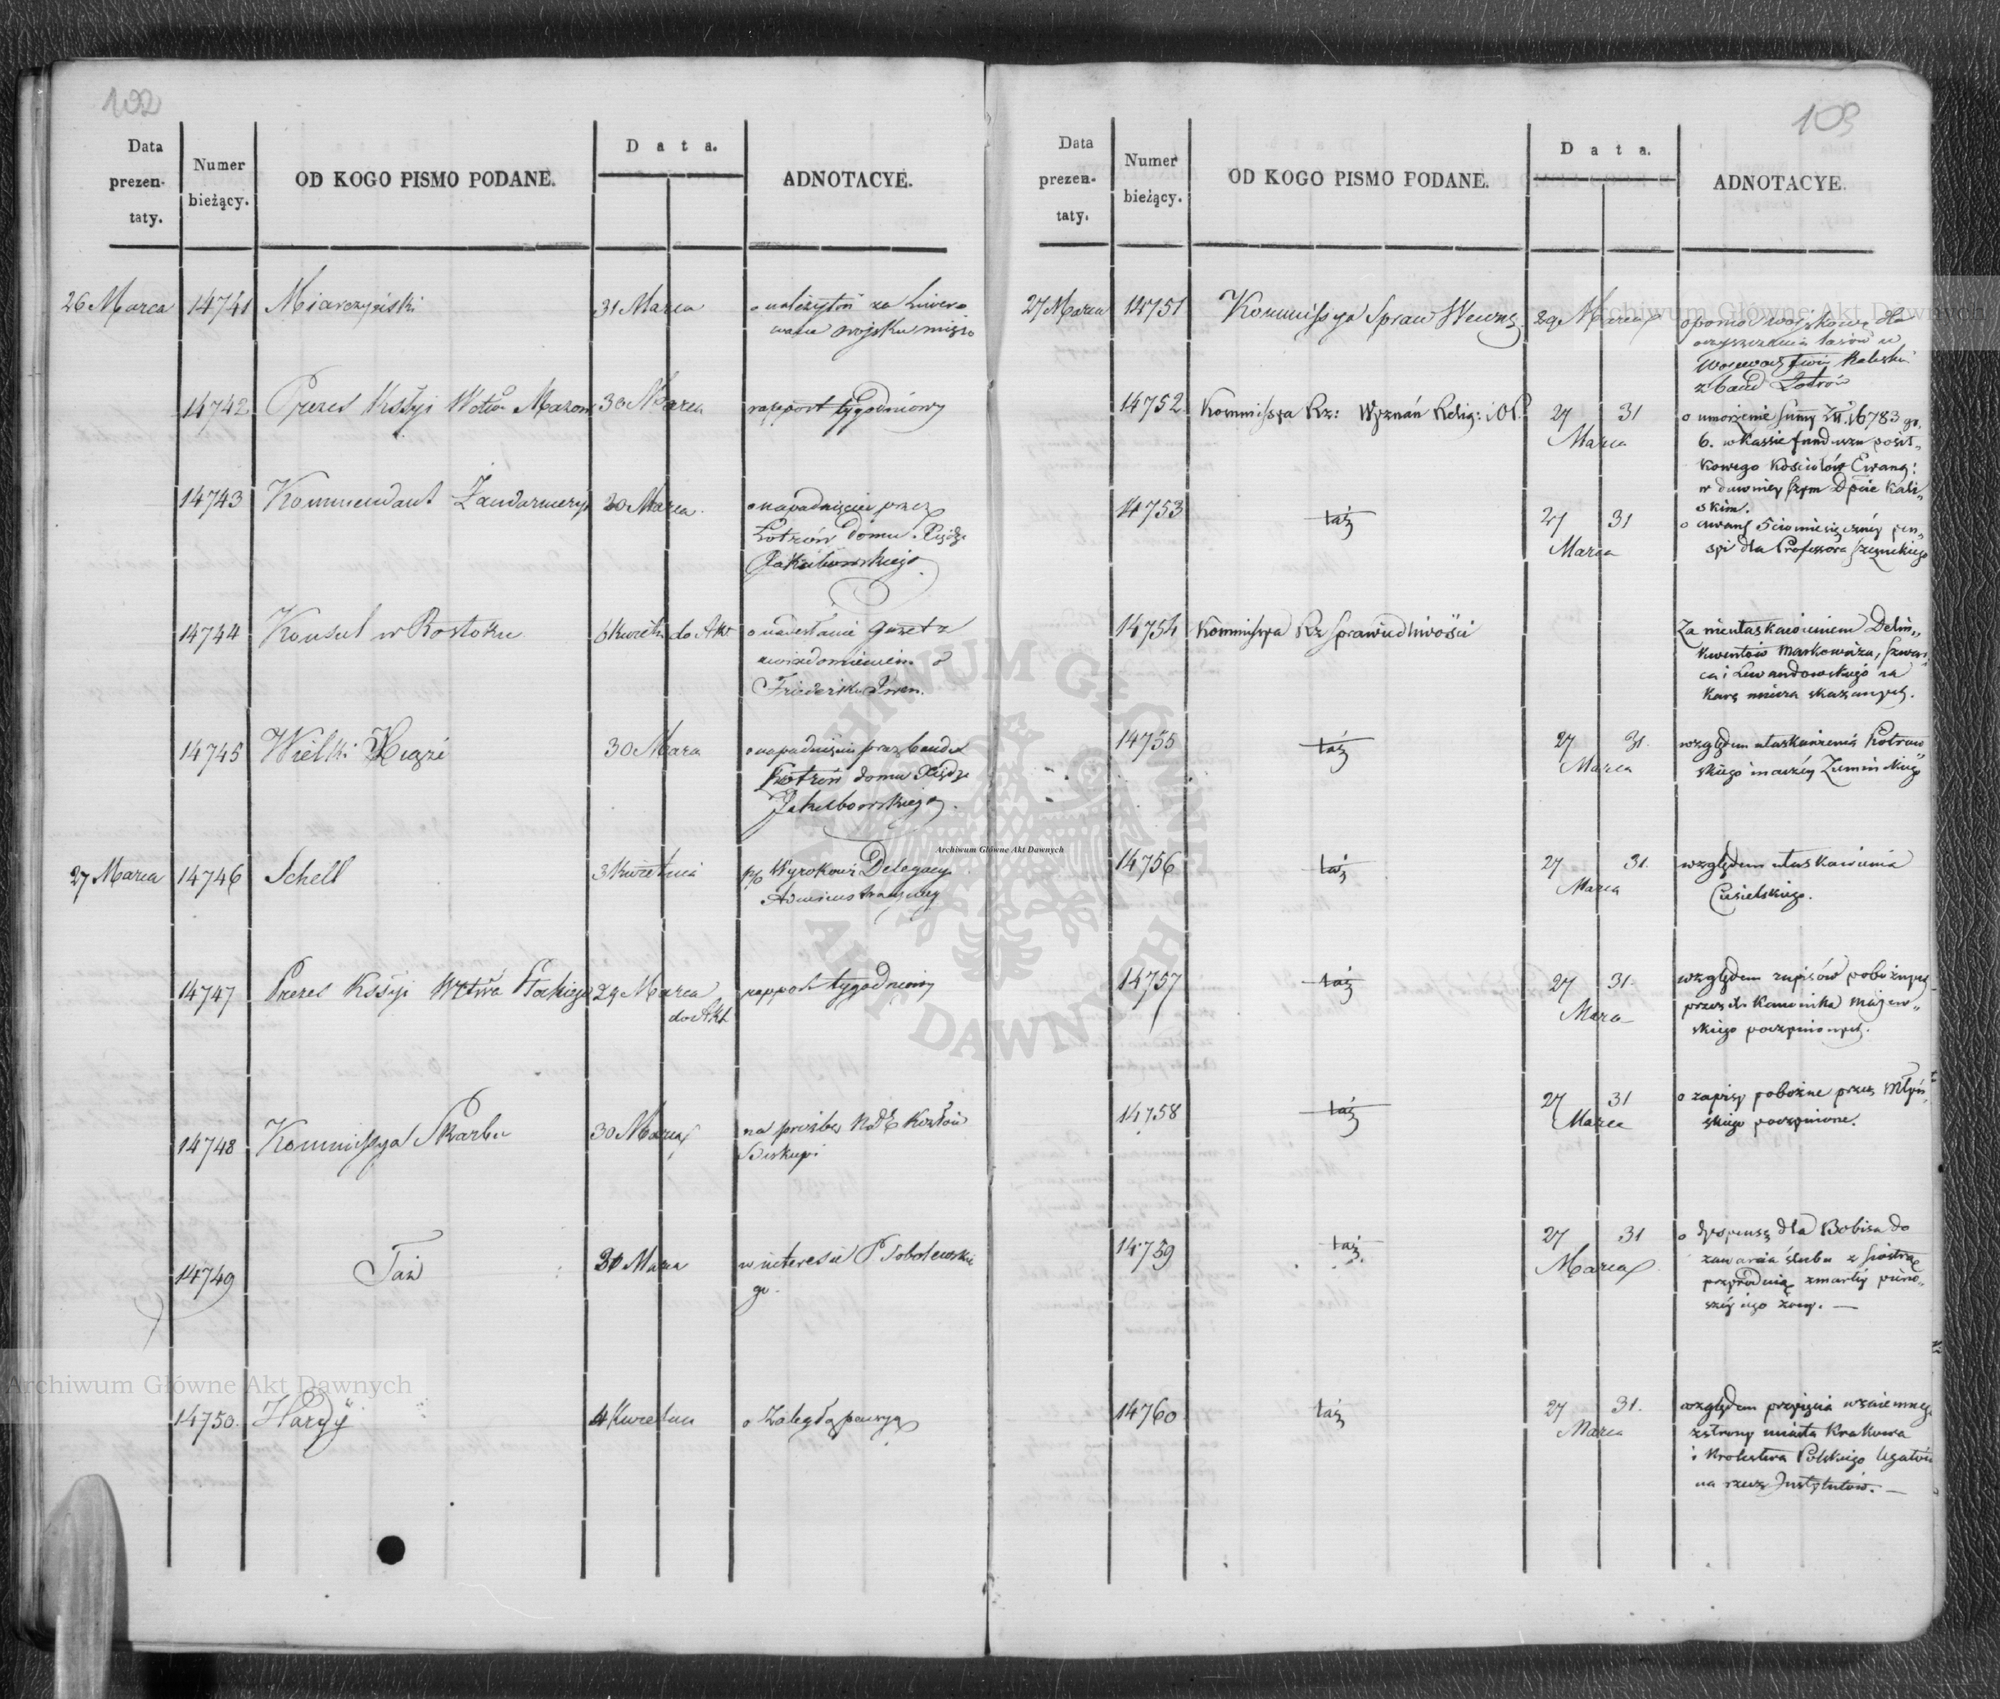 102
Data prezen- taty.
Numer bieżący.
OD KOGO PISMO PODANE.
Data.
ADNOTACYE.
26 Marca 14741 Miarczyński 31 Marca o należytość za liwero
wanie wojsku mięso
14742 Prezes Kssyi Wdtwa Mazow 30 Marca rapport tygodniowy
14743 Kommendant Żandarmeryi 30 Marca o napadnięciu przez
Łotrów domu Xiędza
Jakubowskiego
14744 Konsul w Rostoku 6 Kwietn do Akt o nadesłanie gazet z
uwiadomieniem o
14745 Wielki Xiąże 30 Marca o napadnięciu przez bandę
Łotrów domu Xiędza
Jakubowskiego.
27 Marca 14746 Schell 3 Kwietnia Wyrokowi Delegacyi
Administracyiney
14747 Prezes Kssyi Wdtwa Płockiego 29 Marca rapport tygodniowy
do Akt
14748 Kommissya Skarbu 30 Marca na prośbę
Biskupi
14749 Taż Marca w interesie P Sobolewskie
go.
14750. Hardÿ 4 Kwietnia o zaległą pensyą
Archiwum Główne Akt Dawnych
103
Data prezen- taty.
Numer bieżący.
OD KOGO PISMO PODANE.
Data.
ADNOTACYE.
27 Marca 14751 Kommissya Spraw Wewnę. 29 Marca o pomoc wojskową dla
oczyszczenia lasów w
Województwie Kaliskim
z band Łotrów
14752 Kommissya Rz: Wyznań Relig: i O.P. 27 31 o umorzenie summy Zł. 16783 gr.
Marca 6. w kassie funduszu posił-
kowego Kościołów Ewang:
w dawnieyszym Dpcie Kali-
skim.
14753 taż 27 31 o awans 5ciomiesięczney pen-
Marca syi dla Professora
14754 Kommissya Rz Sprawiedliwości Za nieułaskawieniem Delin-
kwentów Markowicza, Szwar-
ca i Lewandowskiego na
karę miecza skazanych.
14755 taż 27 31. względem ułaskawienia Piotrow
Marca skiego inaczéy Zieminskiego
14756 taż 27 31. względem ułaskawienia
Marca Ciesielskiego.
14757 taż 27 31. względem zapisów pobożnych
Marca przez ś. Kanonika Majew-
skiego poczynionych.
14758 taż 27 31 o zapisy pobożne przez Młyń-
Marca skiego poczynione.
14759 taż. 27 31 o dyspensę dla Bobisa do
Marca zawarcia ślubu z siostrą
przyrodnią zmarłéy pierw-
széy iego żony. —
14760 taż 27 31. względem przyięcia wzaiemnego
Marca z strony miasta Krakowa
i Królestwa Polskiego legatów
na rzecz Instytutów. —
Archiwum Główne Akt Dawnych
Archiwum Główne Akt Dawnych
ARCHIWUM GŁÓWNE AKT DAWNYCH